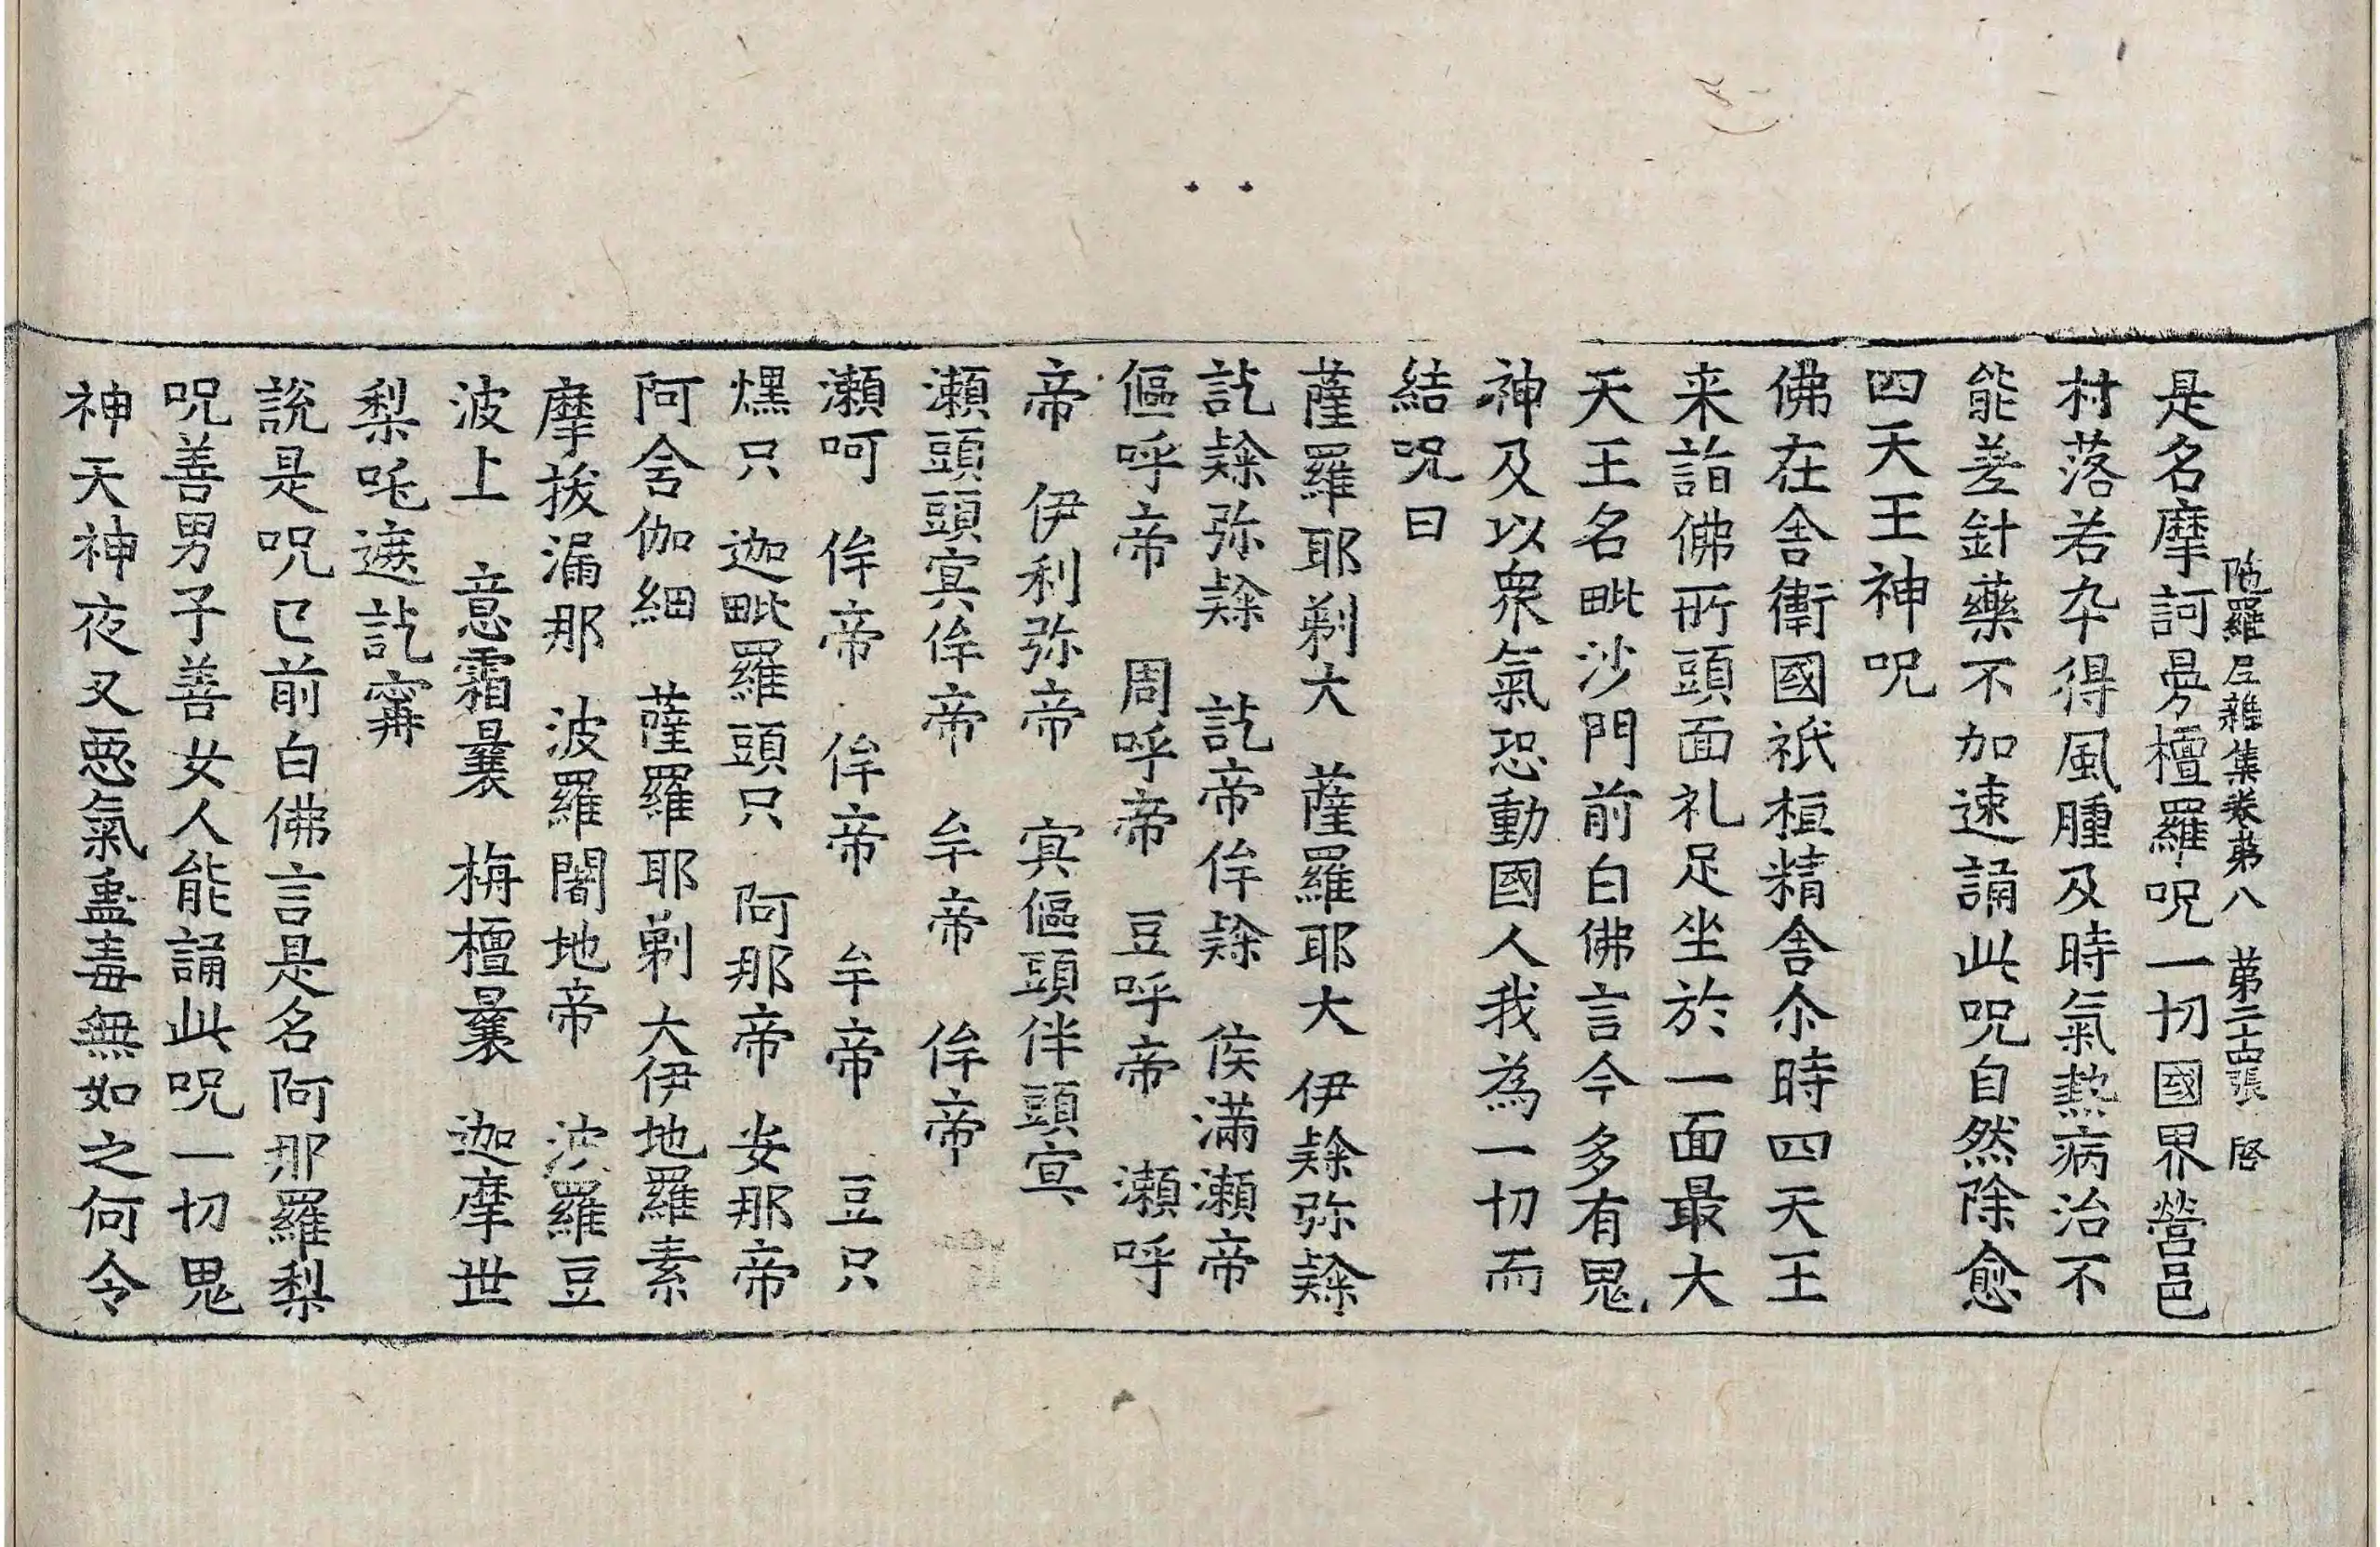 陁羅尼雜集卷第八 第二十四張 啓
是名摩訶旻檀羅呪一切國界營邑
村落若卒得風腫及時氣熱病治不
能差針藥不加速誦此呪自然除愈
四天王神呪
佛在舍衛國祇桓精舍尒時四天王
来詣佛所頭面礼足坐於一面最大
天王名毗沙門前白佛言今多有鬼
神及以衆氣恐動國人我為一切而
結呪曰
薩羅耶剃大 薩羅耶大 伊弥
訖弥 訖帝侔 侯滿瀨帝
傴呼帝 周呼帝 豆呼帝 瀨呼
帝 伊利弥帝 寘傴頭伴頭寘
瀨頭頭寘侔帝 牟帝 侔帝
瀨呵 侔帝 侔帝 牟帝 豆只
爅只 迦毗羅頭只 阿那帝 安那帝
阿舍伽細 薩羅耶剃大伊地羅素
摩拔漏那 波羅闍地帝 波羅豆
波上 意霜曩 栴檀曩 迦摩世
梨吒遮訖寗
說是呪已前白佛言是名阿那羅梨
呪善男子善女人能誦此呪一切鬼
神天神夜叉惡氣蛊毒無如之何令